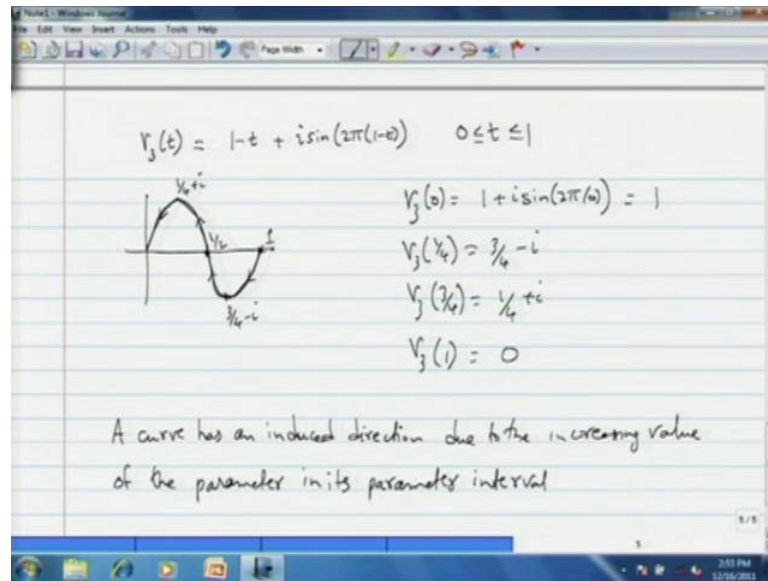 Note1 - Windows Journal
File Edit View Insert Actions Tools Help
Page Width
γ₃(t) = 1-t + i sin(2π(1-t)) 0 ≤ t ≤ 1
1/4 + i
1/2
1
3/4 - i
γ₃(0) = 1 + i sin(2π(0)) = 1
γ₃(1/4) = 3/4 - i
γ₃(3/4) = 1/4 + i
γ₃(1) = 0
A curve has an induced direction due to the increasing value
of the parameter in its parameter interval
5/5
5
2:53 PM
12/16/2011